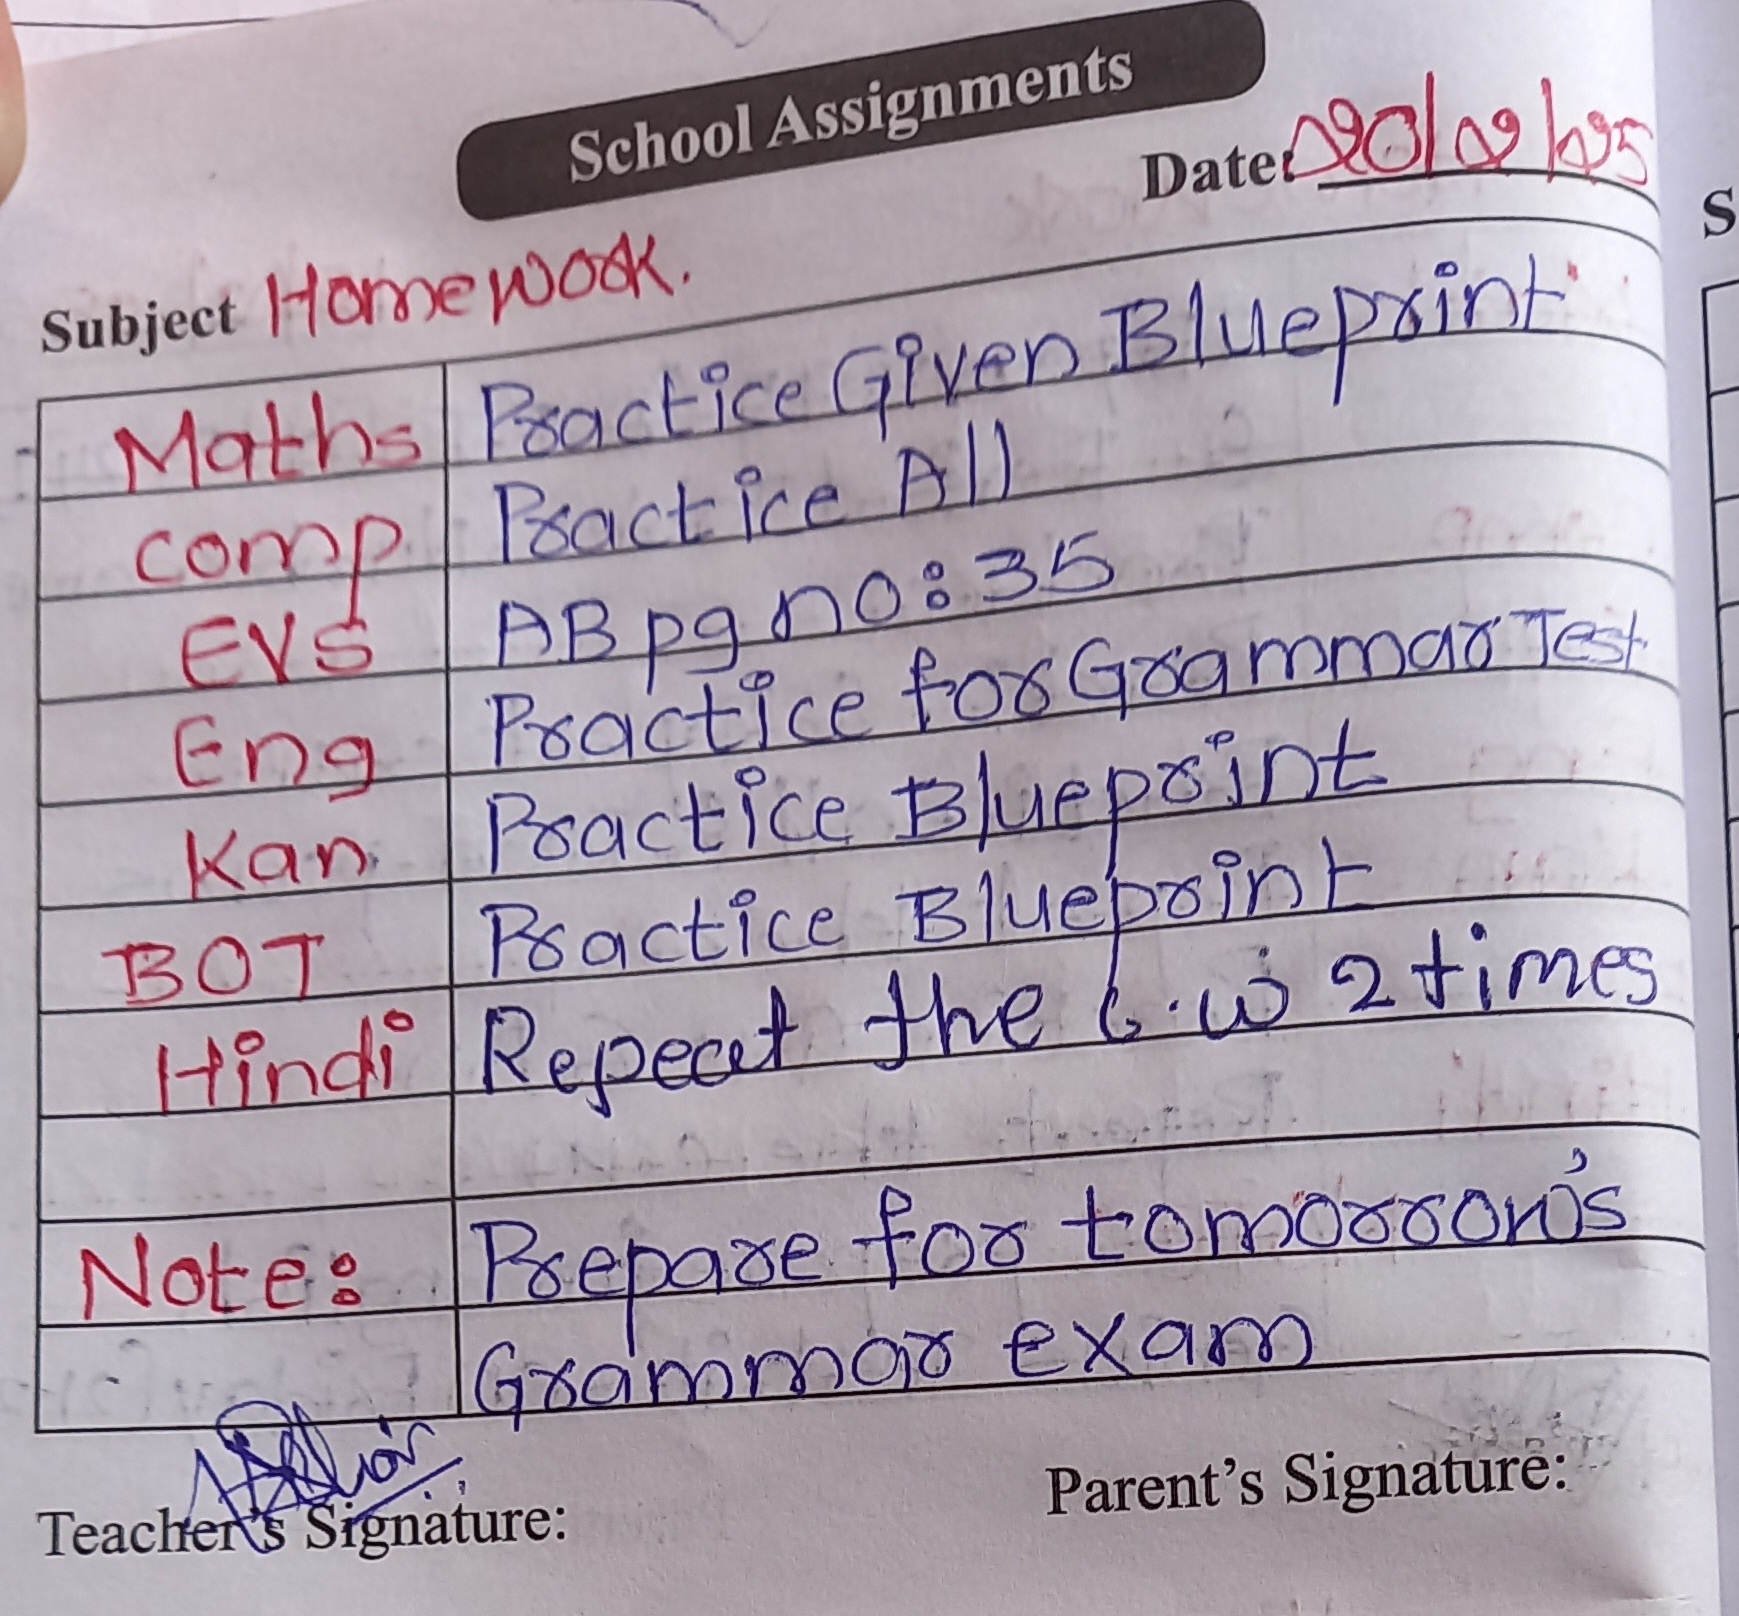 School Assignments
Date: 20/02/25
Subject Homework.
Maths Practice Given Blueprint
Comp Practice All
EVS AB pg no: 35
Eng Practice for Grammar Test
Kan Practice Blueprint
BOT Practice Blueprint
Hindi Repeat the C.W 2 times
Note: Prepare for tomorrow's
Grammar exam
Teacher's Signature:
Parent's Signature:
S